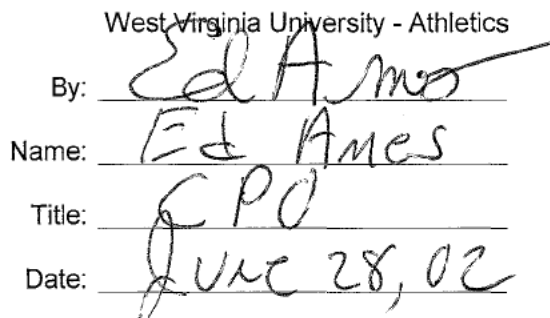 West Virginia University - Athletics
By: Ed Ames
Name: Ed Ames
Title: CPO
Date: June 28, 02